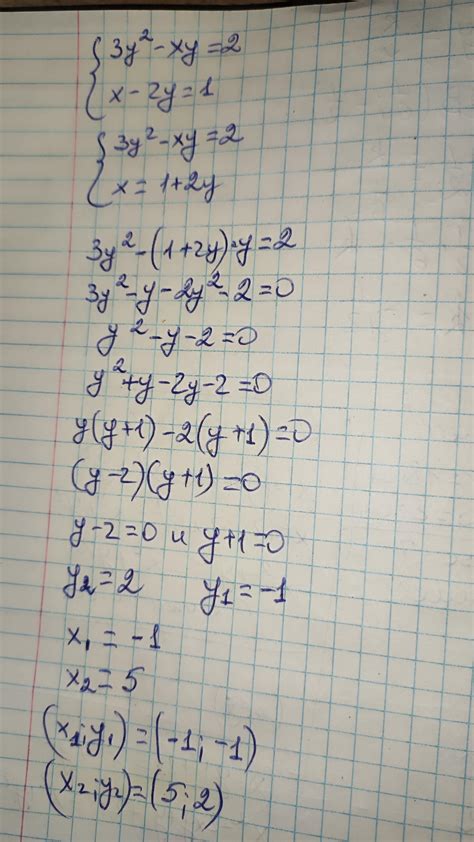 {3y²-xy=2
{x-2y=1
{3y²-xy=2
{x=1+2y
3y²-(1+2y)·y=2
3y²-y-2y²-2=0
y²-y-2=0
y²+y-2y-2=0
y(y+1)-2(y+1)=0
(y-2)(y+1)=0
y-2=0 и y+1=0
y₂=2 y₁=-1
x₁=-1
x₂=5
(x₁;y₁)=(-1;-1)
(x₂;y₂)=(5;2)